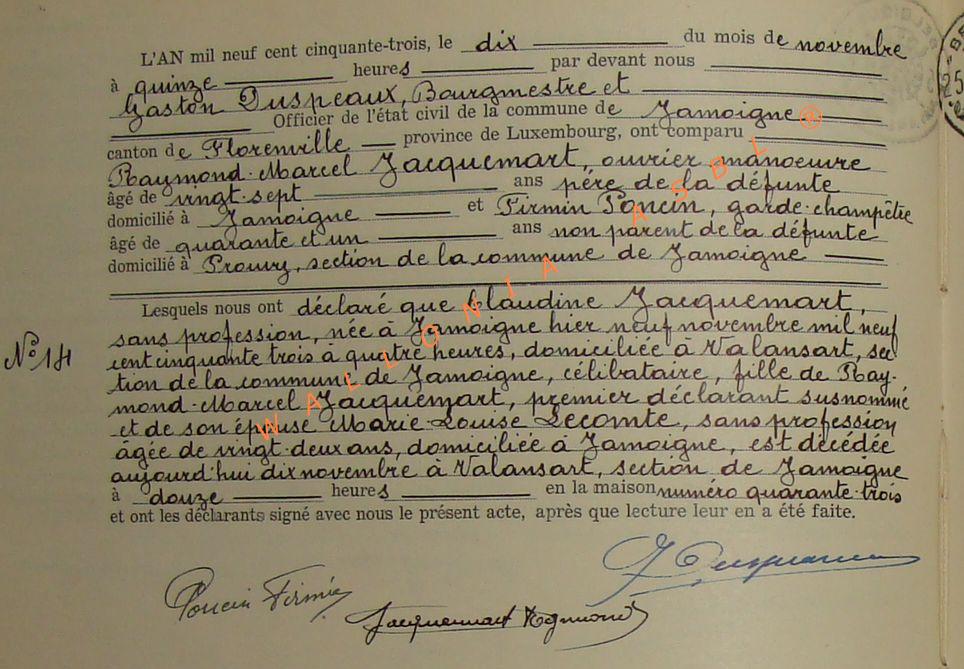 L'AN mil neuf cent cinquante-trois, le dix du mois de novembre
à quinze heures par devant nous
Gaston Duspeaux, Bourgmestre et
Officier de l'état civil de la commune de Jamoigne
canton de Florenville province de Luxembourg, ont comparu
Raymond-Marcel Jacquemart, ouvrier manoeuvre
âgé de vingt-sept ans père de la défunte
domicilié à Jamoigne et Firmin Poncin, garde-champêtre
âgé de quarante et un ans non parent de la défunte
domicilié à Prouvy, section de la commune de Jamoigne
Lesquels nous ont déclaré que Claudine Jacquemart,
sans profession, née à Jamoigne hier neuf novembre mil neuf
cent cinquante trois à quatre heures, domiciliée à Valansart, sec
N° 14
tion de la commune de Jamoigne, célibataire, fille de Ray-
mond-Marcel Jacquemart, premier déclarant susnommé
et de son épouse Marie-Louise Lecomte, sans profession
âgée de vingt-deux ans, domiciliée à Jamoigne, est décédée
aujourd'hui dix novembre à Valansart, section de Jamoigne
à douze heures en la maison numéro quarante-trois
et ont les déclarants signé avec nous le présent acte, après que lecture leur en a été faite.
Poncin Firmin
Jacquemart Raymond
WALLONIA ASBL ®
25